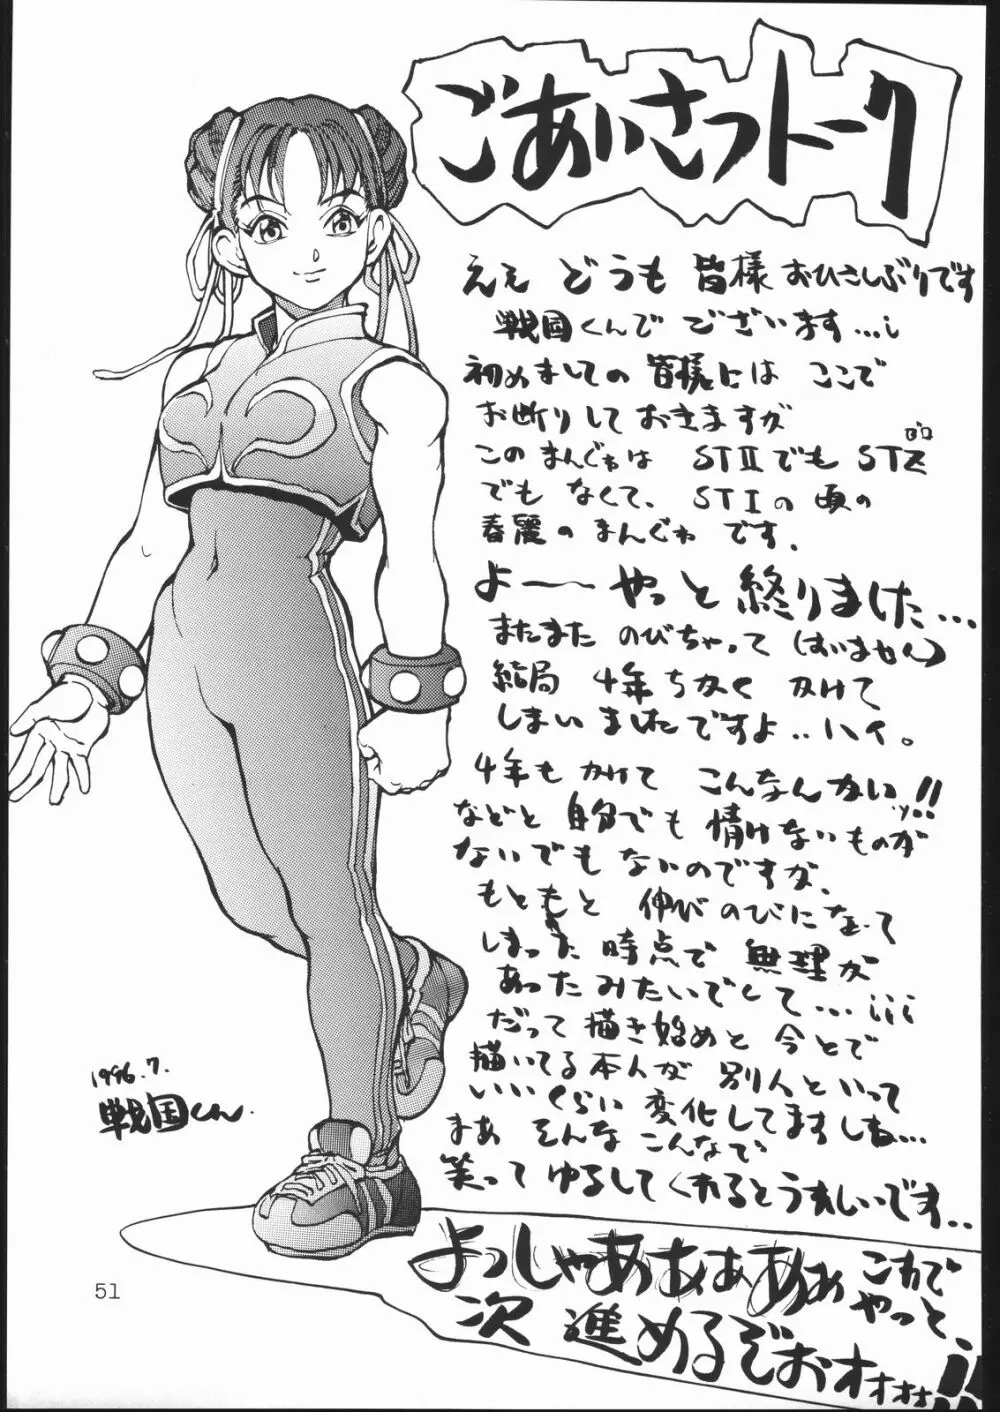 ごあいさつトーク
ええ どうも 皆様 おひさしぶりです
戦国くんで ございます…
初めましての 皆様には ここで
お断りして おきますが
このまんがは STⅡでも STZ
ゼロ
でも なくて、STⅠの頃の
春麗の まんがです.
よ――やっと 終りました…
またまた のびちゃって (すいません)
結局 4年ちかく かけて
しまいましたですよ..ハイ。
4年も かけて こんなんかいッ!!
などと 自分でも 情けないものが
ないでもないのですが、
もともと 伸びのびになって
しまった 時点で 無理が
あったみたいでして…
だって 描き始めと 今とで
描いてる本人が 別人といって
いいくらい 変化してますしね…
まあ そんな こんなで
笑って ゆるしてくれるとうれしいです..
よっしゃあああああ これで
やっと、
次 進めるぞおオォォォ!!
1996.7.
戦国くん.
51